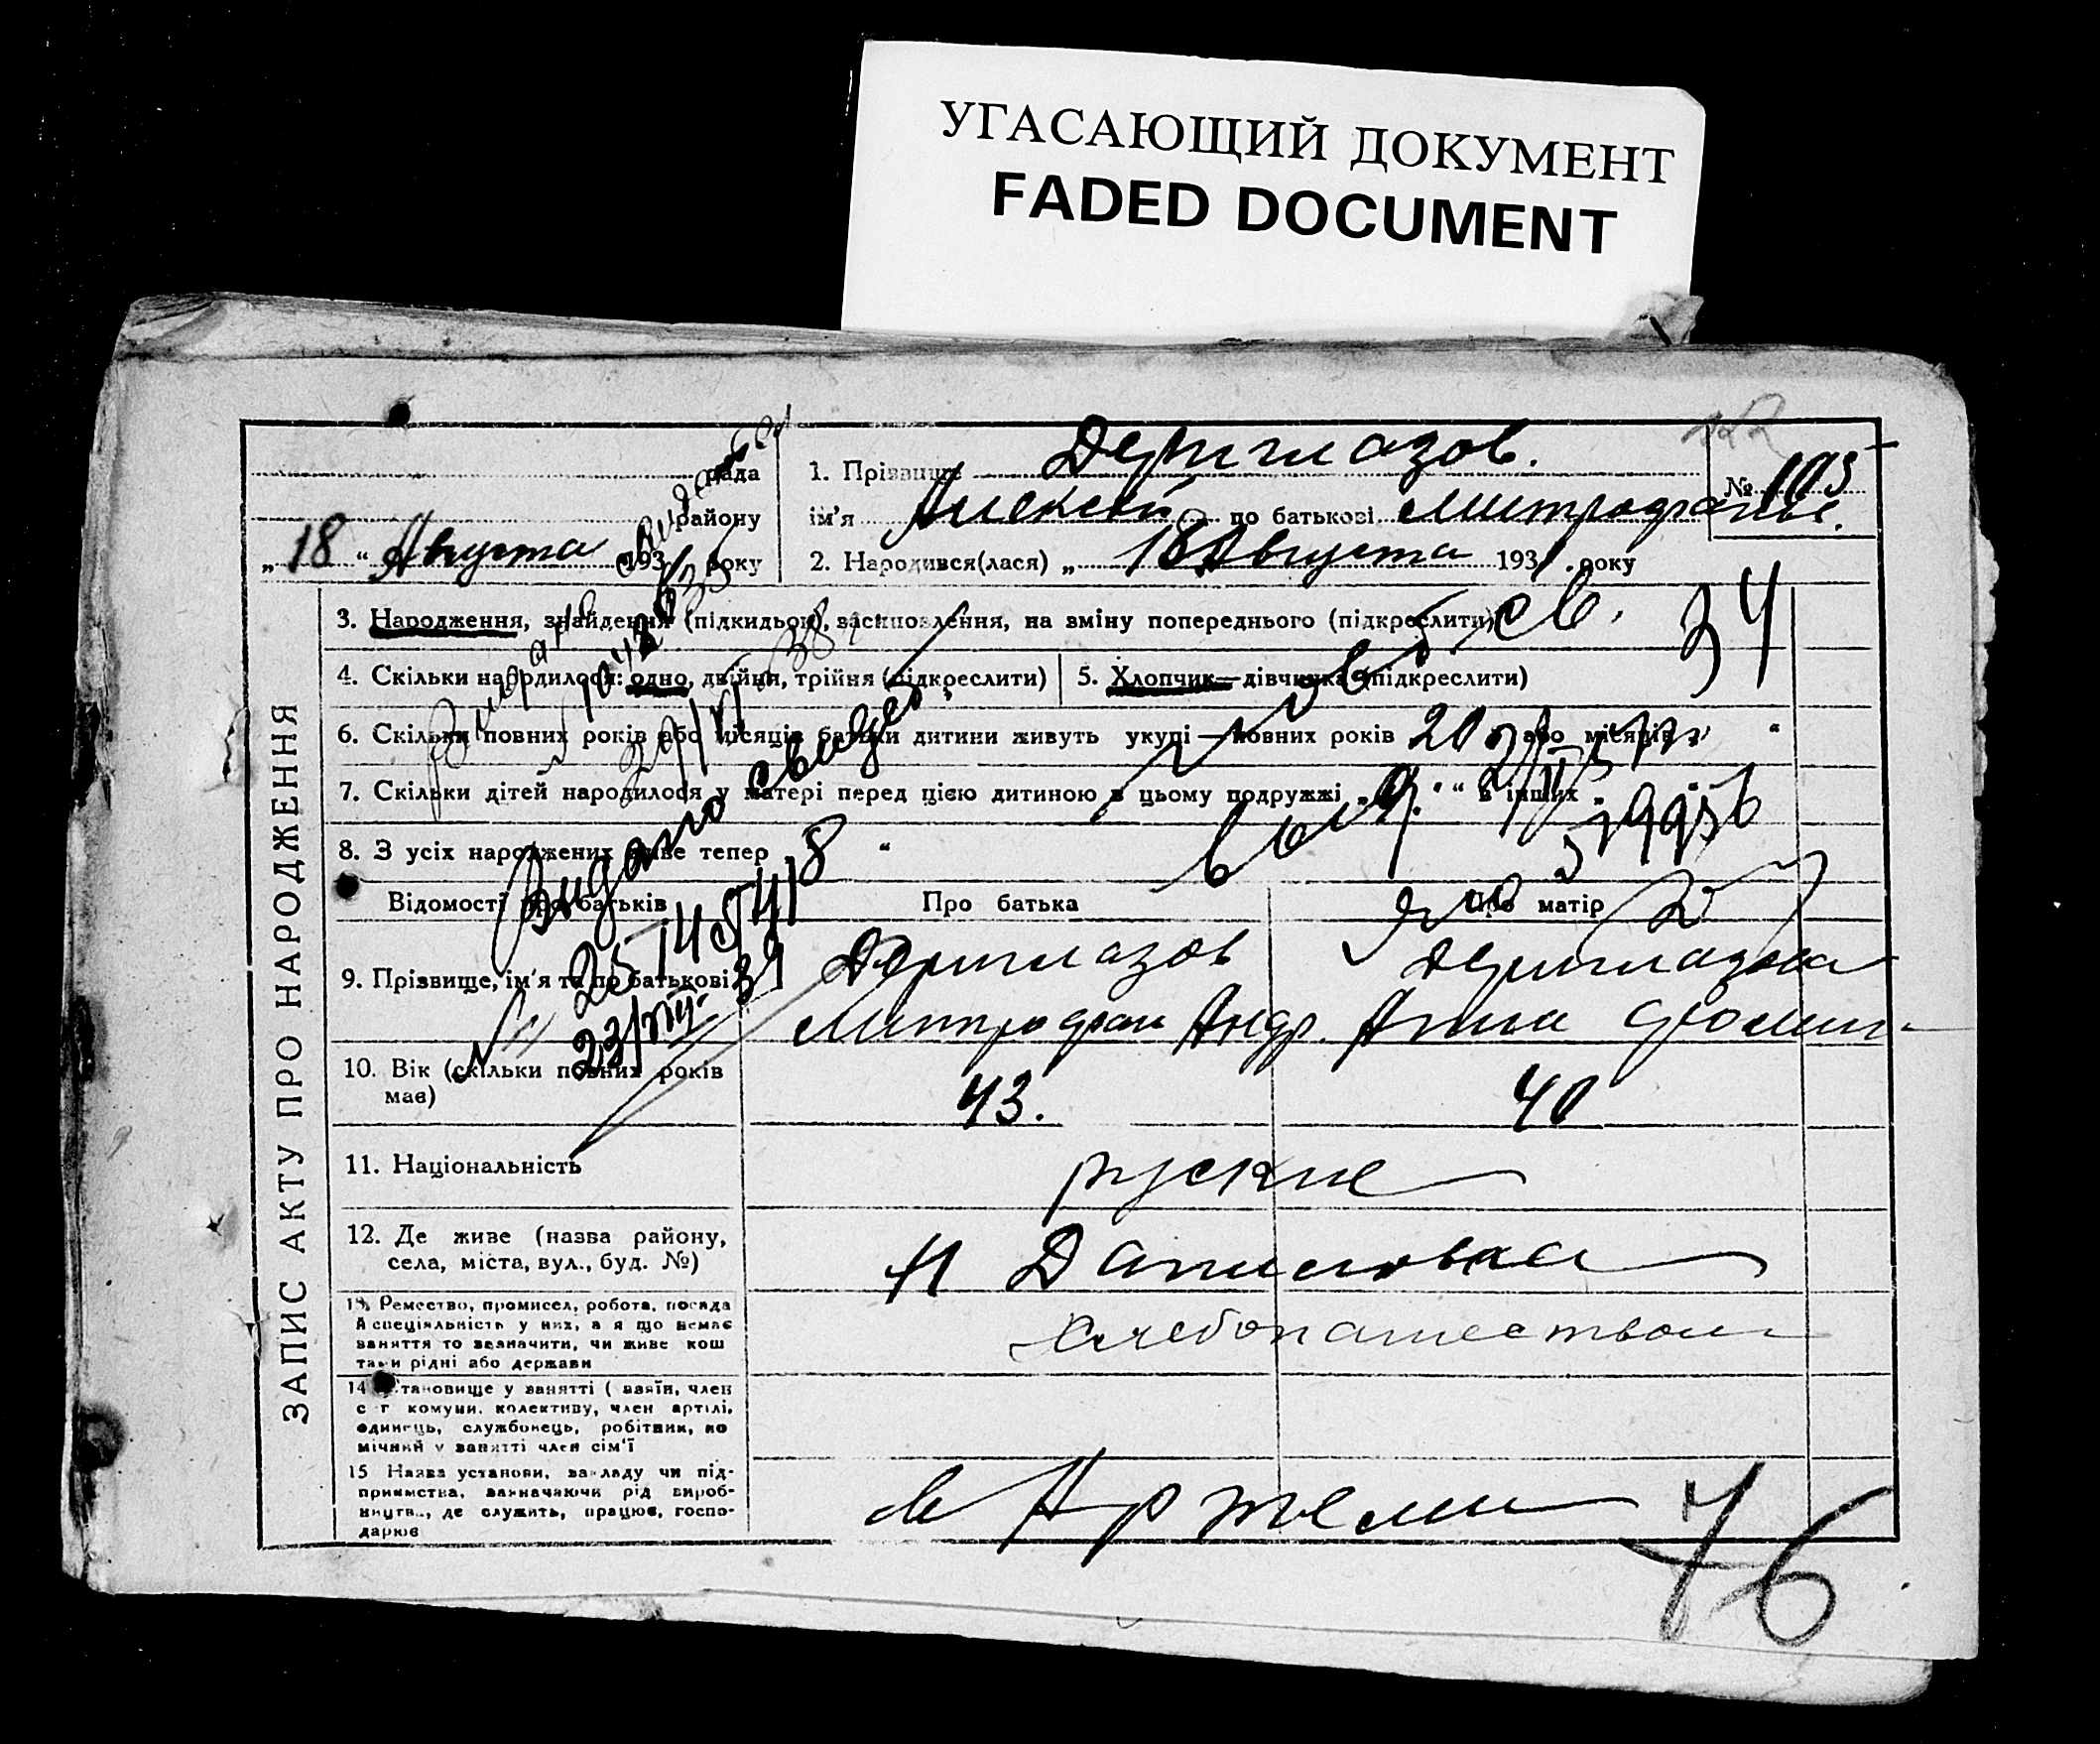 УГАСАЮЩИЙ ДОКУМЕНТ
FADED DOCUMENT
ЗАПИС АКТУ ПРО НАРОДЖЕННЯ
рада
району
„18“ Августа 1931 року
1. Прізвище Дериглазов.
№ 105
ім'я Алексей по батькові Митрофанов.
2. Народився(лася) „18 Августа 1931 року
3. Народження, знайдення (підкидьок), всиновлення, на зміну попереднього (підкреслити)
34
4. Скільки народилося: одно, двійня, трійня (підкреслити)
5. Хлопчик—дівчинка (підкреслити)
6. Скільки повних років або місяців батьки дитини живуть укупі — повних років 20 або місяців „ “
7. Скільки дітей народилося у матері перед цією дитиною в цьому подружжі „9“ в інших „
8. З усіх народжених живе тепер 8 “
Видано свидет.
Відомості про батьків
Про батька
Про матір
9. Прізвище, ім'я та по батькові
Дериглазов
Дериглазова
Митрофан Андр.
Анна
10. Вік (скільки повних років має)
43.
40
11. Національність
руские
12. Де живе (назва району,
села, міста, вул., буд. №)
Даниловка
13. Ремество, промисел, робота, посада
й спеціяльність у них, а я що немає
заняття то зазначити, чи живе кош
тами рідні або держави
хлебопашеством
14. Становище у занятті (хазяїн, член
с г комуни, колективу, член артілі,
одинець, службовець, робітник, по
мічний у занятті член сім'ї
15 Назва установи, закладу чи під-
приємства, зазначаючи рід вироб-
ництв., де служить, працює, госпо-
дарює
в Артели
76